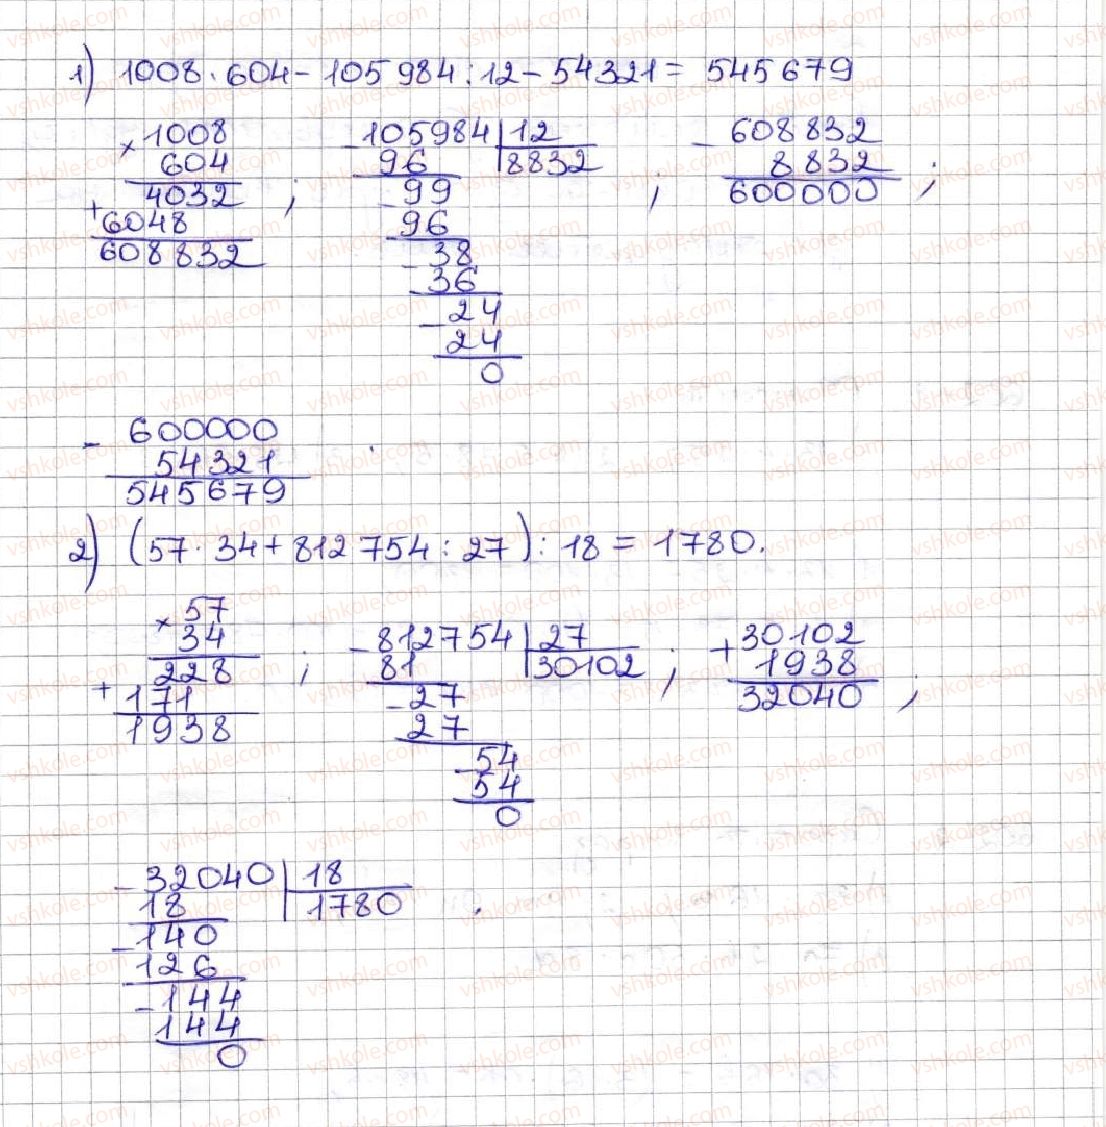 1) 1008 · 604 - 105 984 : 12 - 54 321 = 545 679
× 1008
604
4032
+ 6048
608832 ;
- 105984 | 12
96 | 8832
- 99
96
- 38
36
- 24
24
0 ;
- 608 832
8 832
600000 ;
- 600000
54 321
545679 .
2) (57 · 34 + 812 754 : 27) : 18 = 1780.
× 57
34
228
+ 171
1938 ;
- 812754 | 27
81 | 30102
- 27
27
- 54
54
0 ;
+ 30102
1938
32040 ;
- 32040 | 18
18 | 1780 .
- 140
126
- 144
144
0
vshkole.com